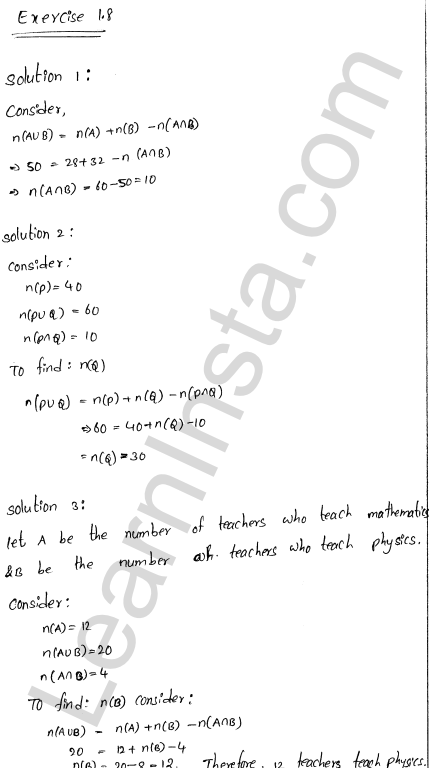 Exercise 1.8
Solution 1:
Consider,
n(A∪B) = n(A) + n(B) - n(A∩B)
⇒ 50 = 28+32 - n (A∩B)
⇒ n(A∩B) = 60-50=10
solution 2:
consider:
n(p)= 40
n(p∪Q) = 60
n(p∩Q) = 10
TO find: n(Q)
n(p∪Q) = n(p) + n(Q) - n(p∩Q)
⇒60 = 40+n(Q)-10
= n(Q) = 30
solution 3:
let A be the number of teachers who teach mathematics
&B be the number teachers who teach physics.
Consider:
n(A)= 12
n(A∪B)=20
n(A∩B)=4
TO find: n(B) consider:
n(A∪B) = n(A) +n(B) -n(A∩B)
20 = 12+ n(B)-4
n(B) = 20-8 =12. Therefore, 12 teachers teach physics.
LearnInsta.com